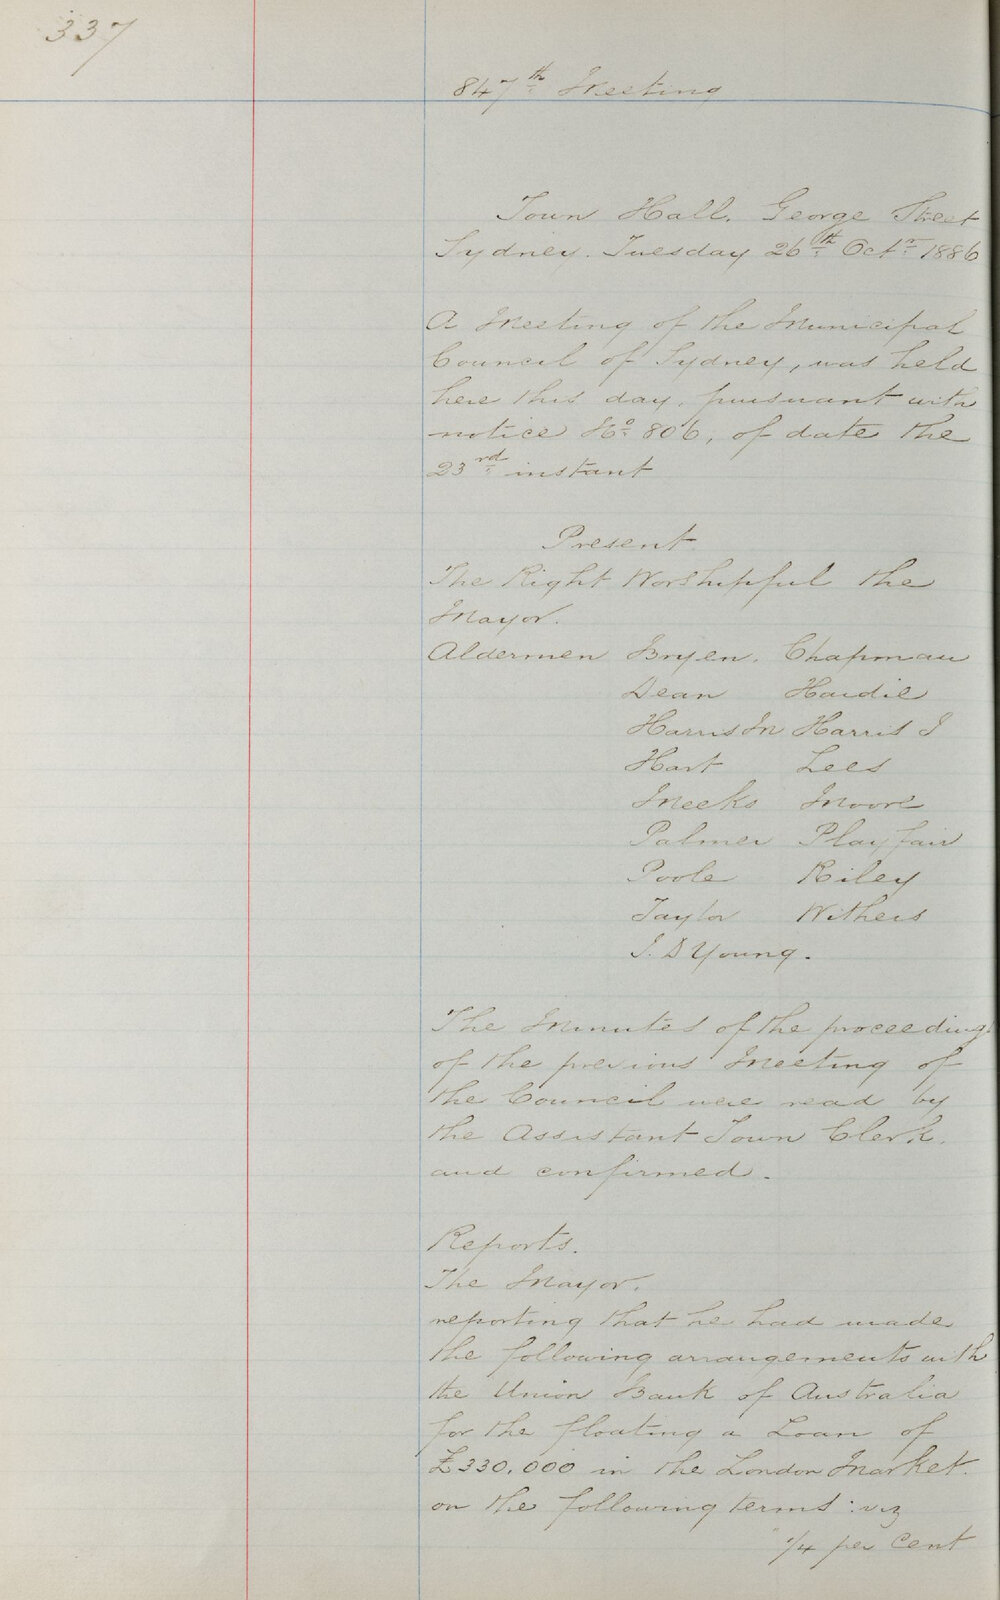 337
847th Meeting
Town Hall. George Street
Sydney. Tuesday 26th Octr 1886
A Meeting of the Municipal
Council of Sydney, was held
here this day, pursuant with
notice No 806, of date the
23rd instant
Present
The Right Worshipful the
Mayor.
Aldermen Bryen. Chapman
Dean Hardie
Harris M Harris J
Hart Lees
Meeks Moore
Palmer Playfair
Poole Riley
Taylor Withers
J. D Young.
The Minutes of the proceedings
of the previous Meeting of
the Council were read by
the Assistant Town Clerk.
and confirmed.
Reports.
The Mayor.
reporting that he had made
the following arrangements with
the Union Bank of Australia
for the floating a Loan of
£330,000 in the London Market.
on the following terms: viz
1/4 per Cent